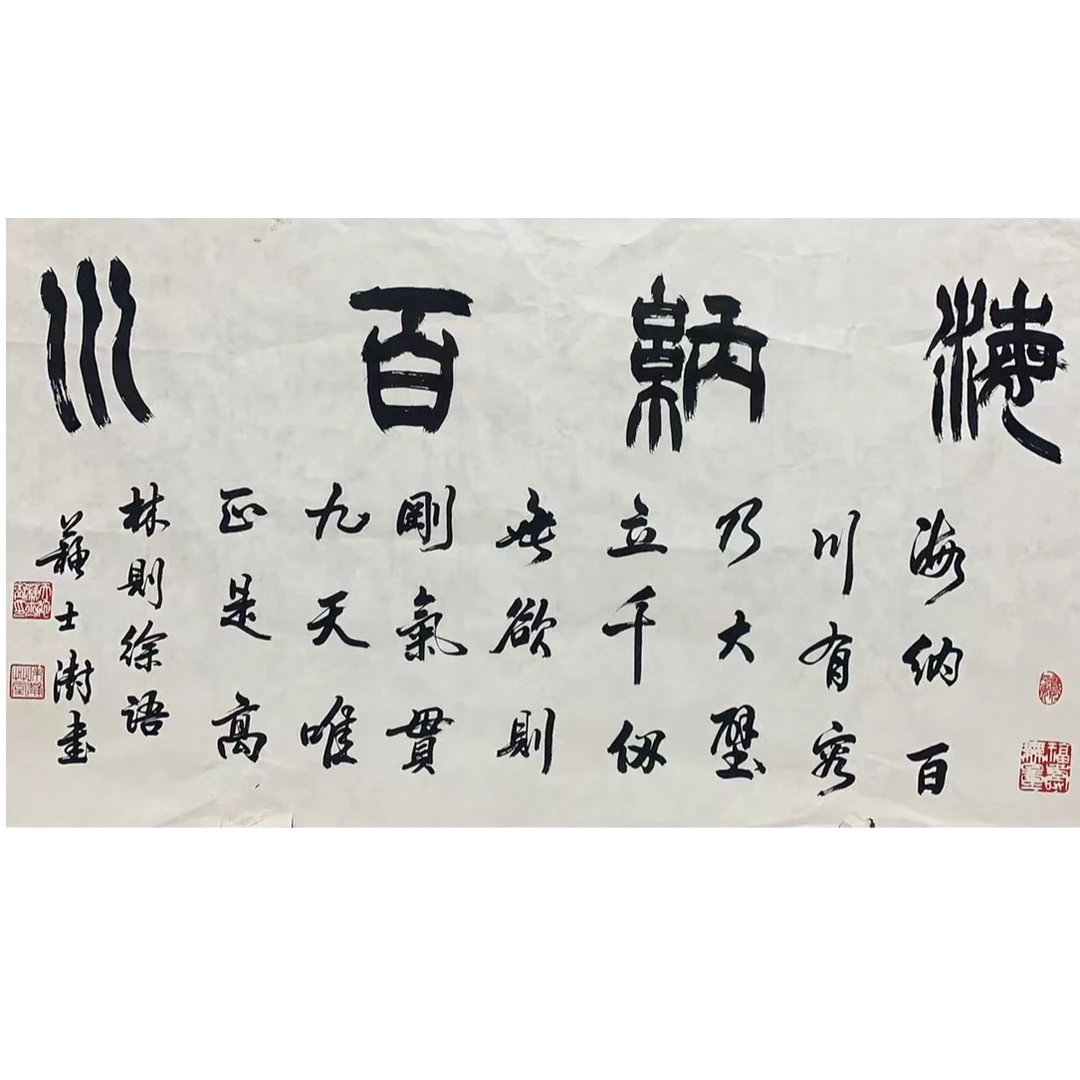 海納百川
海納百
川有容
乃大壁
立千仞
無欲則
剛氣貫
九天唯
正是高
林則徐語
蘇士澍書
福壽無量